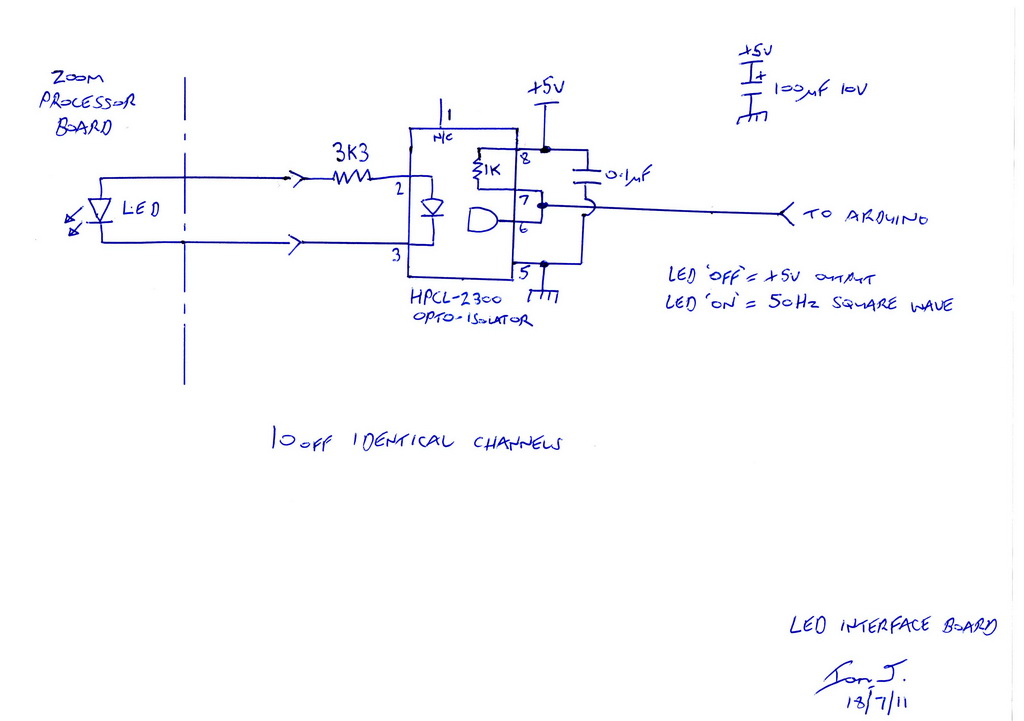 ZOOM
PROCESSOR
BOARD
LED
3K3
2
3
1
N/C
8
1K
7
6
5
+5V
0.1µF
HPCL-2300
OPTO-ISOLATOR
+5V
+
100µF 10V
TO ARDUINO
LED 'OFF' = +5V OUTPUT
LED 'ON' = 50Hz SQUARE WAVE
10 OFF IDENTICAL CHANNELS
LED INTERFACE BOARD
Ian J.
18/7/11